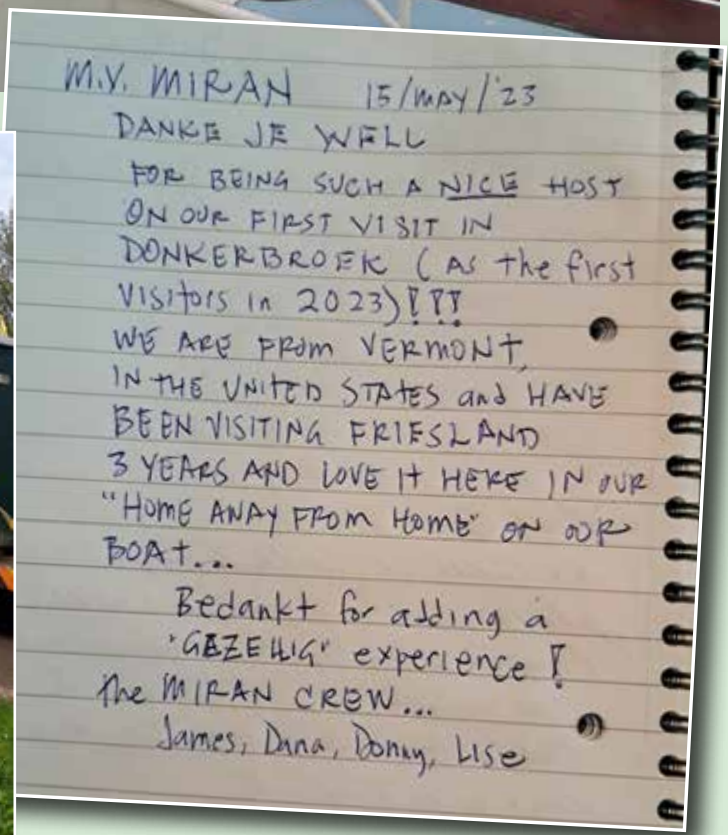 M.Y. MIRAN 15/MAY/'23
DANKE JE WELL
FOR BEING SUCH A NICE HOST
ON OUR FIRST VISIT IN
DONKERBROEK (AS the first
visitors in 2023)!!!
WE ARE FROM VERMONT,
IN THE UNITED STATES and HAVE
BEEN VISITING FRIESLAND
3 YEARS AND LOVE It HERE IN OUR
"HOME AWAY FROM HOME" ON OUR
BOAt...
Bedankt for adding a
"GEZELLIG" experience!
The MIRAN CREW...
James, Dana, Donny, Lise